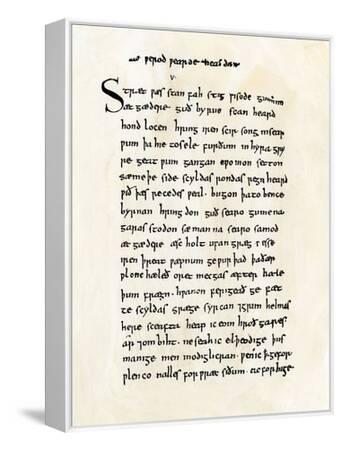 v·
Stræt wæs stan fah stig wisode gumum
æt gædere guð byrne scan heard
hond locen hring iren scir song in sear
wum þa hie to sele furðum in hyra gry
re geat wum gangan cwomon setton
sæmeþe side scyldas rondas regn heard
wið þæs recedes weal · bugon þa to bence
byrnan hring don guð searo gumena
garas stodon sæ man na searo samod
æt gædere æsc holt ufan græg
iren þreat wæpnum ge wurþad
wlonc hæleð oret mecgas æfter hæle
þum frægn · hwanon ferigeað ge fæt
te scyldas græge syrcan grim helmas
here sceafta heap ic eom hroð gares
ar
manige men modiglicran
wlenco nalles for wræc siðum ·